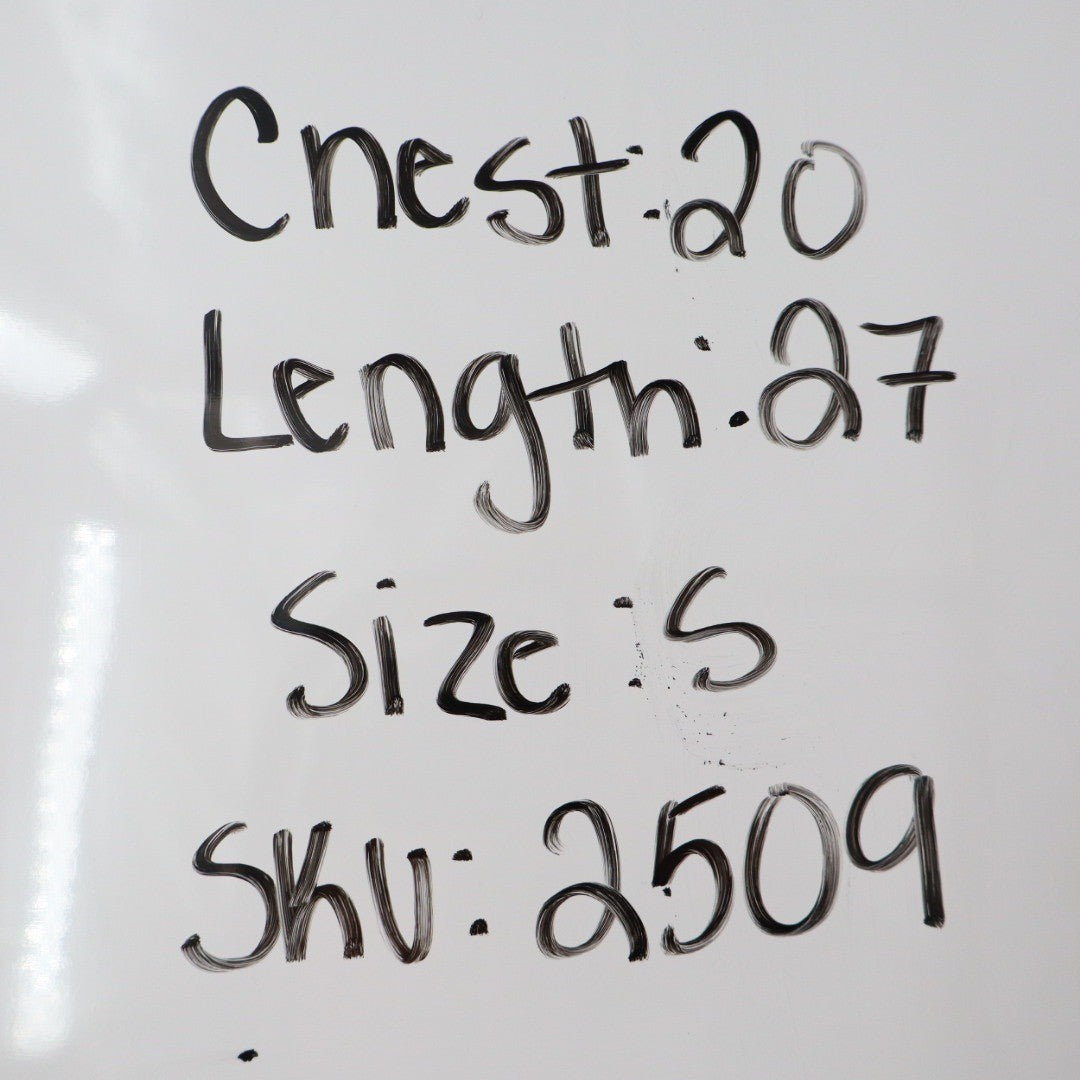 Chest:20
Length:27
Size:S
SKU:2509